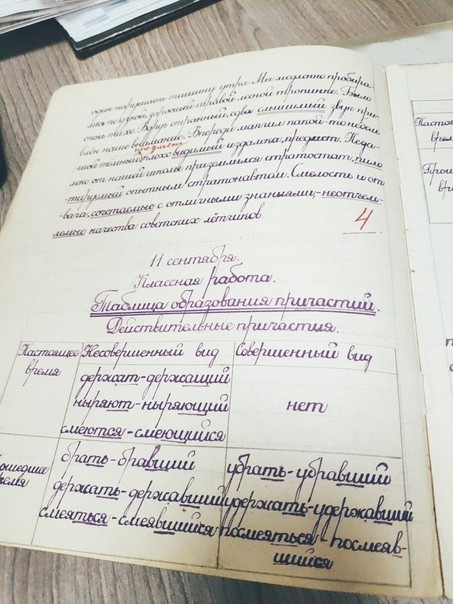 один нарушает тишину утра. Мы медленно пробира-
лись по узкой, заросшей травой лесной тропинке. Было
очень тихо. Вдруг странный, едва слышимый звук при-
влёк наше внимание. Впереди маячил какой-то небом
шой тёмный, плохо видимый издалека, предмет. Неда-
леко от нашей школы приземлился стратостат, пило-
тируемый опытным стратонавтом. Смелость и от-
вага, сочетаемые с отличными знаниями,- неотъем-
лемые качества советских лётчиков.
4
11 сентября.
Классная работа.
Таблица образования причастий.
Действительные причастия.
Настоящее время
Несовершенный вид
Совершенный вид
держат-держащий
ныряют-ныряющий
смеются-смеющийся
нет
время
брать-бравший
держать-державший
смеяться-смеявшийся
убрать-убравший
удержать-удержавший
посмеяться-посмеяв-
шийся
Настоя
врем
Про